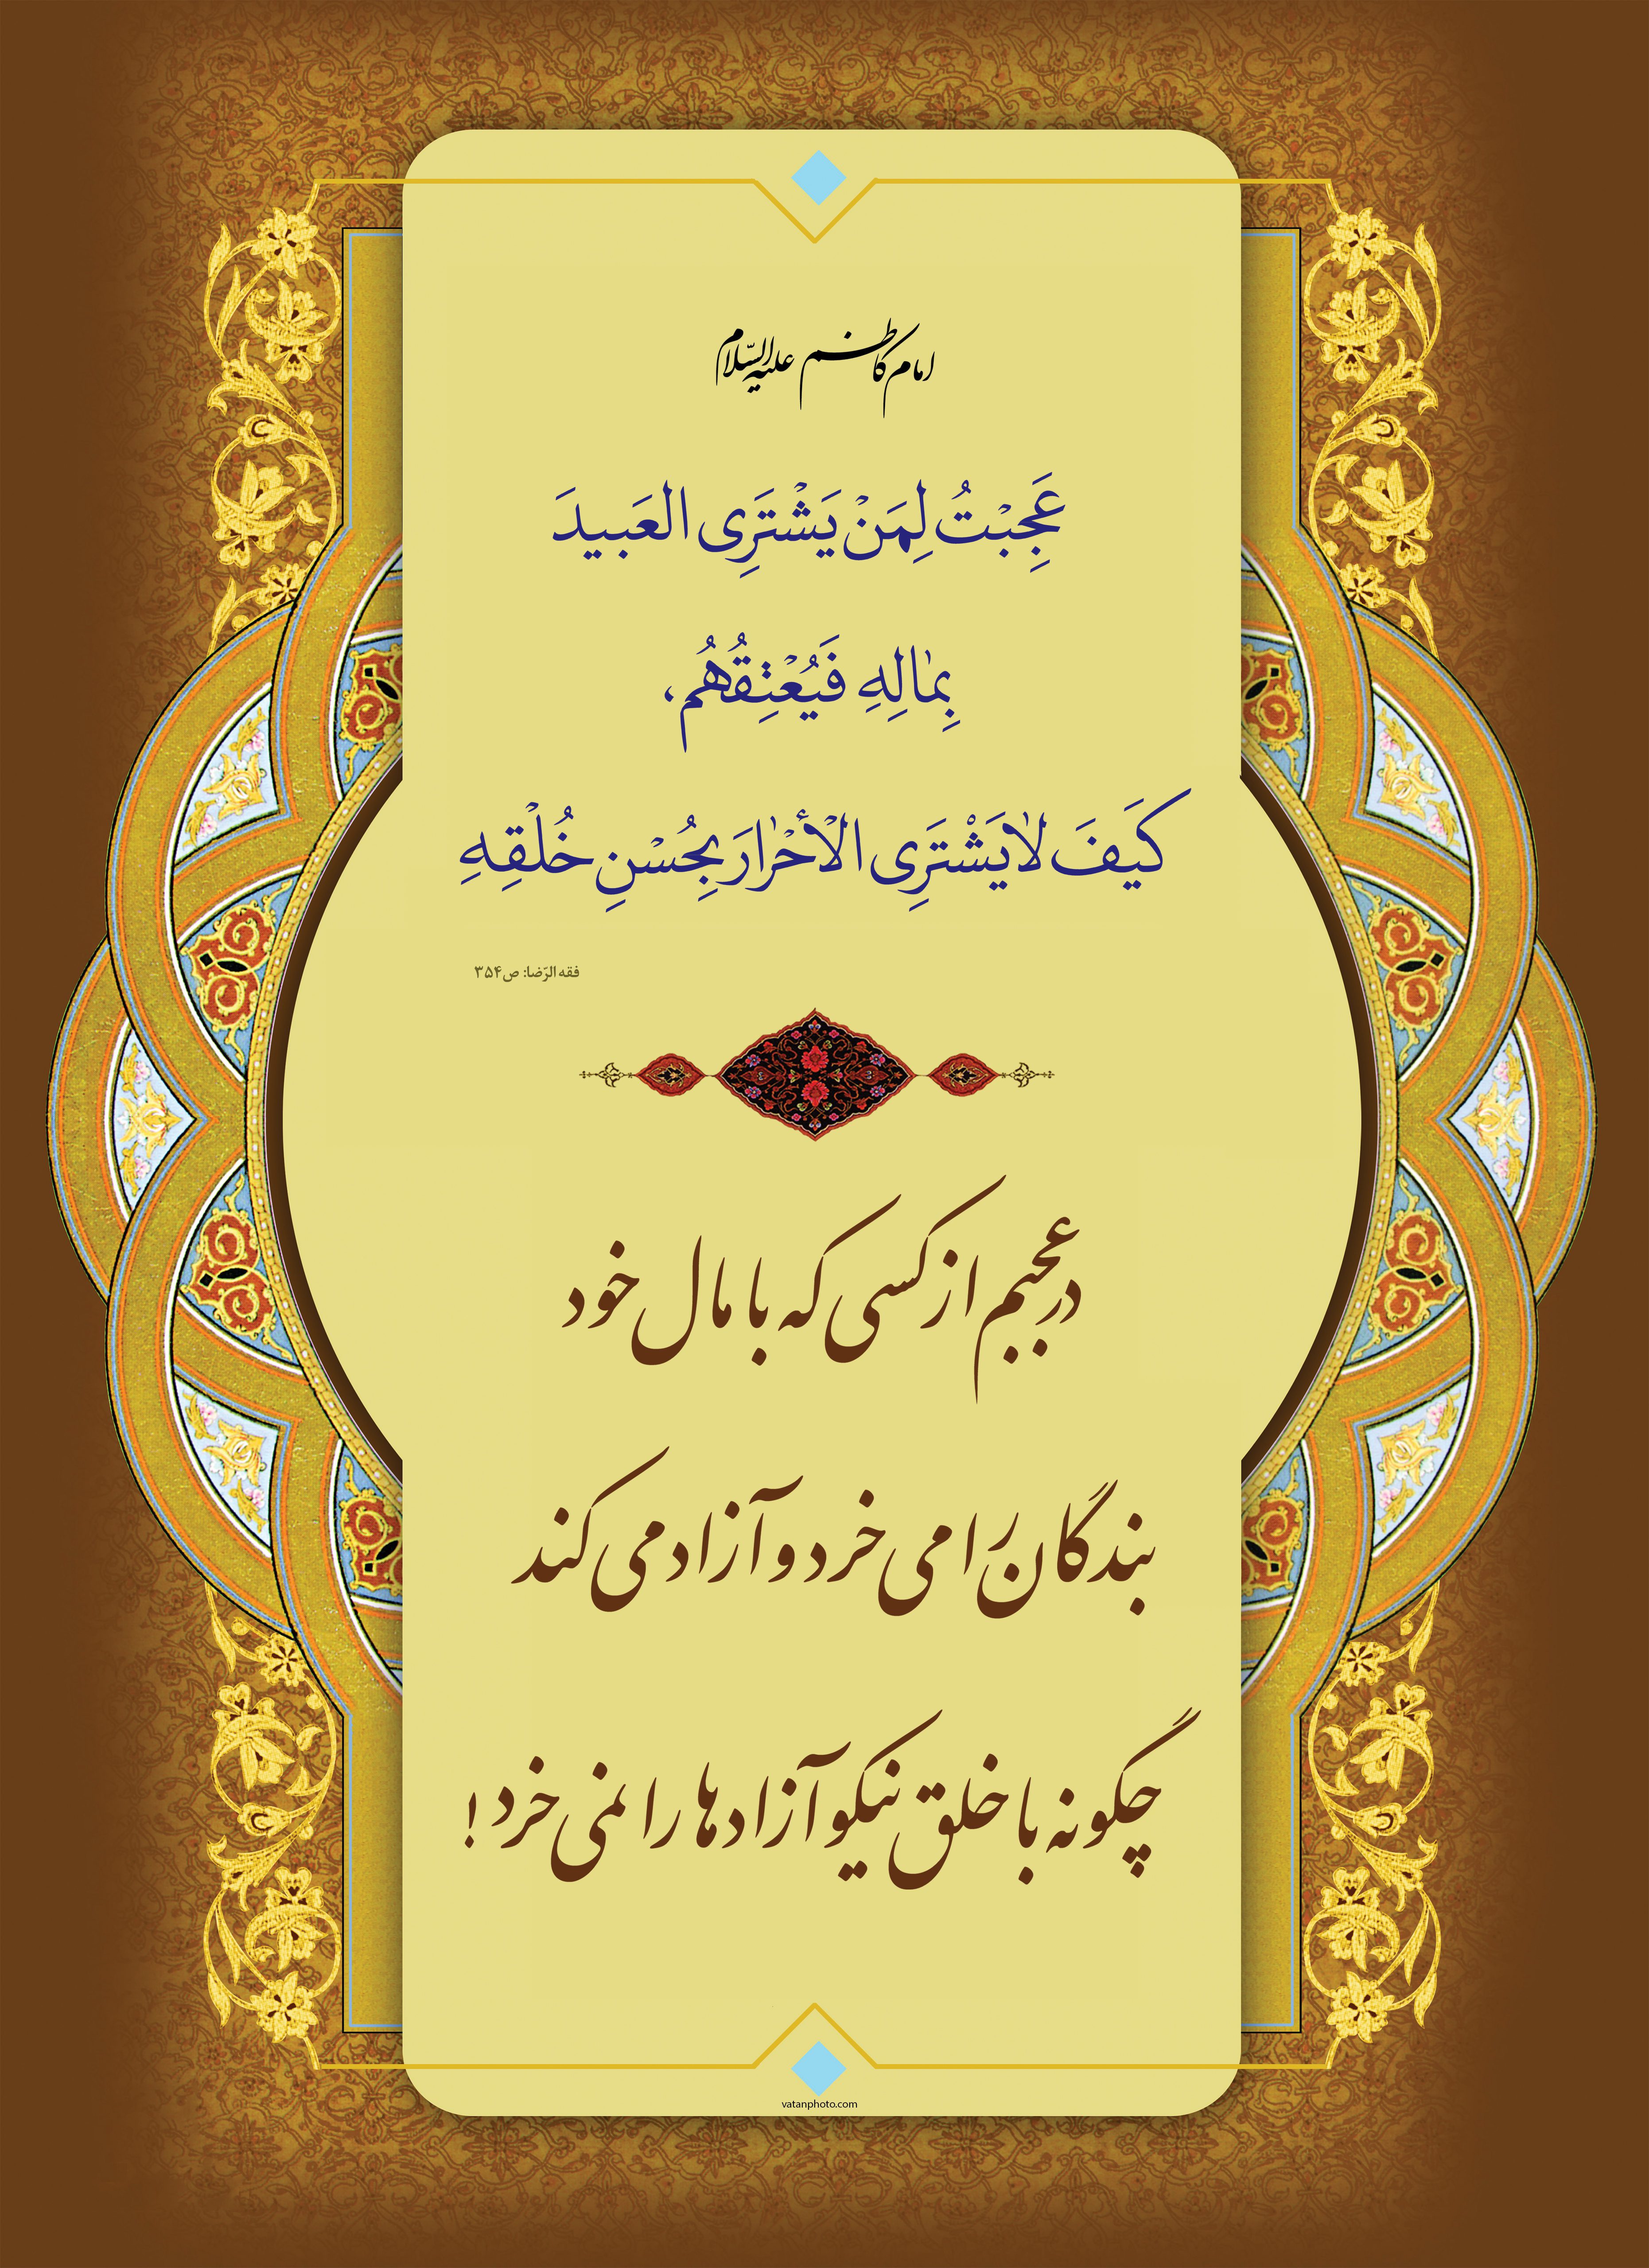 امام کاظم علیه السّلام
عَجِبْتُ لِمَنْ يَشْتَرِى العَبيدَ
بِمٰالِهِ فَيُعْتِقُهُم،
كَيَفَ لاٰيَشْتَرِى الْأَحْرٰارَ بِحُسْنِ خُلْقِهِ
فقه الرّضا: ص۳۵۴
در عجبم از کسی که با مال خود
بندگان را می خرد و آزاد می کند
چگونه با خلق نیکو آزادها را نمی خرد !
vatanphoto.com